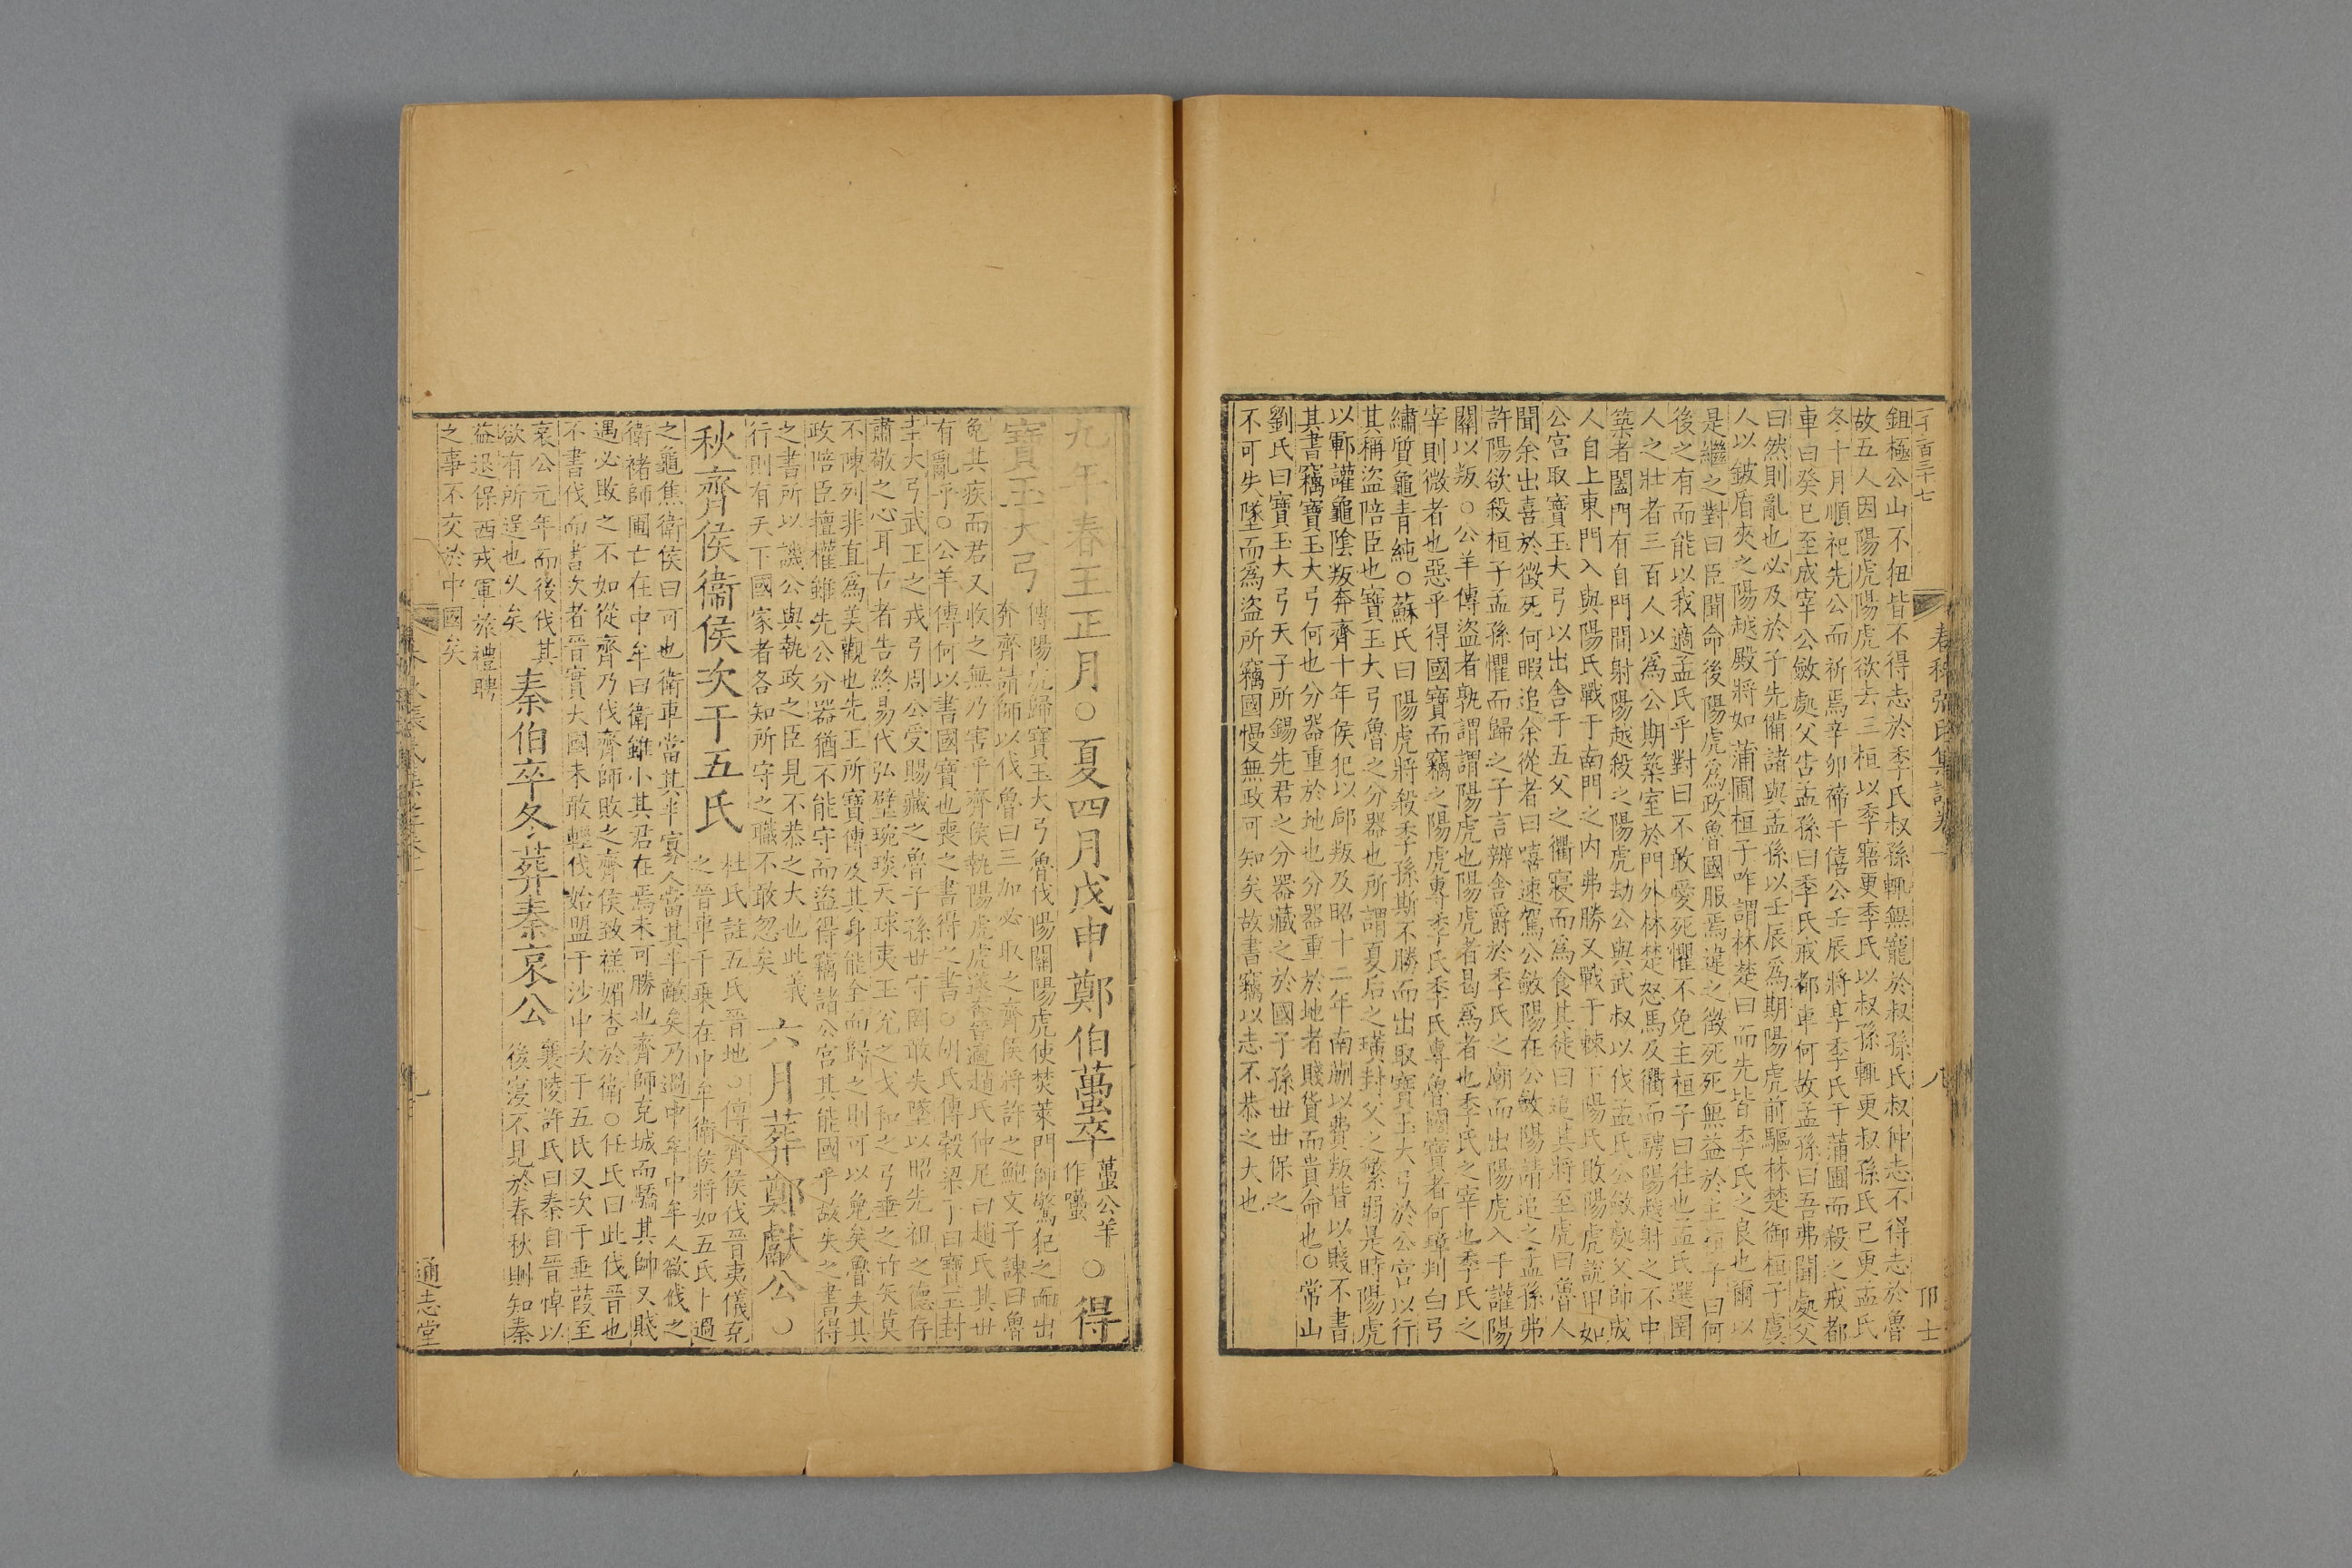 鉏極公山不狃皆不得志於季氏叔孫輒無寵於叔孫氏叔仲志不得志於魯
故五人因陽虎陽虎欲去三桓以季寤更季氏以叔孫輒更叔孫氏己更孟氏
冬十月順祀先公而祈焉辛卯禘于僖公壬辰將享季氏于蒲圃而殺之戒都
車曰癸巳至成宰公斂處父告孟孫曰季氏戒都車何故孟孫曰吾弗聞處父
曰然則亂也必及於子先備諸與孟孫以壬辰為期陽虎前驅林楚御桓子虞
人以鈹盾夾之陽越殿將如蒲圃桓子咋謂林楚曰而先皆季氏之良也爾以
是繼之對曰臣聞命後陽虎為政魯國服焉違之徵死死無益於主桓子曰何
後之有而能以我適孟氏乎對曰不敢愛死懼不免主桓子曰往也孟氏選圉
人之壯者三百人以為公期築室於門外林楚怒馬及衢而騁陽越射之不中
築者闔門有自門間射陽越殺之陽虎劫公與武叔以伐孟氏公斂處父帥成
人自上東門入與陽氏戰于南門之内弗勝又戰于棘下陽氏敗陽虎說甲如
公宮取寶玉大弓以出舍于五父之衢寢而為食其徒曰追其將至虎曰魯人
聞余出喜於徵死何暇追余從者曰嘻速駕公斂陽在公斂陽請追之孟孫弗
許陽欲殺桓子孟孫懼而歸之子言辨舍爵於季氏之廟而出陽虎入于讙陽
關以叛○公羊傳盜者孰謂謂陽虎也陽虎者曷為者也季氏之宰也季氏之
宰則微者也惡乎得國寶而竊之陽虎專季氏季氏專魯國寶者何璋判白弓
繡質龜青純○蘇氏曰陽虎將殺季孫斯不勝而出取寶玉大弓於公宮以行
其稱盜陪臣也寶玉大弓魯之分器也所謂夏后之璜封父之繁弱是時陽虎
以鄆讙龜陰叛奔齊十年侯犯以郈叛及昭十二年南蒯以費叛皆以賤不書
其書竊寶玉大弓何也分器重於地也分器重於地者賤貨而貴命也○常山
劉氏曰寶玉大弓天子所錫先君之分器藏之於國子孫世世保之
不可失墜而為盜所竊國慢無政可知矣故書竊以志不恭之大也
九年春王正月○夏四月戊申鄭伯蠆卒 蠆公羊作囆 ○得
寶玉大弓 傳陽虎歸寶玉大弓魯伐陽關陽虎使焚萊門師驚犯之而出
奔齊請師以伐魯曰三加必取之齊侯將許之鮑文子諫曰魯
免其疾而君又收之無乃害乎齊侯執陽虎虎遂奔晉適趙氏仲尼曰趙氏其世
有亂乎○公羊傳何以書國寶也喪之書得之書○胡氏傳穀梁子曰寶玉封
圭大弓武王之戎弓周公受賜藏之魯子孫世守罔敢失墜以昭先祖之德存
肅敬之心耳古者告終易代弘璧琬琰天球夷玉兌之戈和之弓垂之竹矢莫
不陳列非直為美觀也先王所寶傳及其身能全而歸之則可以免矣魯失其
政陪臣擅權雖先公分器猶不能守而盜得竊諸公宮其能國乎故失之書得
之書所以譏公與執政之臣見不恭之大也此義
行則有天下國家者各知所守之職不敢忽矣 六月葬鄭獻公○
秋齊侯衞侯次于五氏 杜氏註五氏晉地○傳齊侯伐晉夷儀克
之晉車千乘在中牟衛侯將如五氏卜過
之龜焦衛侯曰可也衛車當其半寡人當其半敵矣乃過中牟中牟人欲伐之
衛褚師圃亡在中牟曰衛雖小其君在焉未可勝也齊師克城而驕其帥又賤
遇必敗之不如從齊乃伐齊師敗之齊侯致禚媚杏於衛○任氏曰此伐晉也
不書伐而書次者晉實大國未敢輕伐始盟于沙中次于五氏又次于垂葭至
哀公元年而後伐其
欲有所逞也久矣 秦伯卒冬葬秦哀公 襄陵許氏曰秦自晉悼以
後寖不見於春秋則知秦
益退保西戎軍旅禮聘
之事不交於中國矣
通志堂